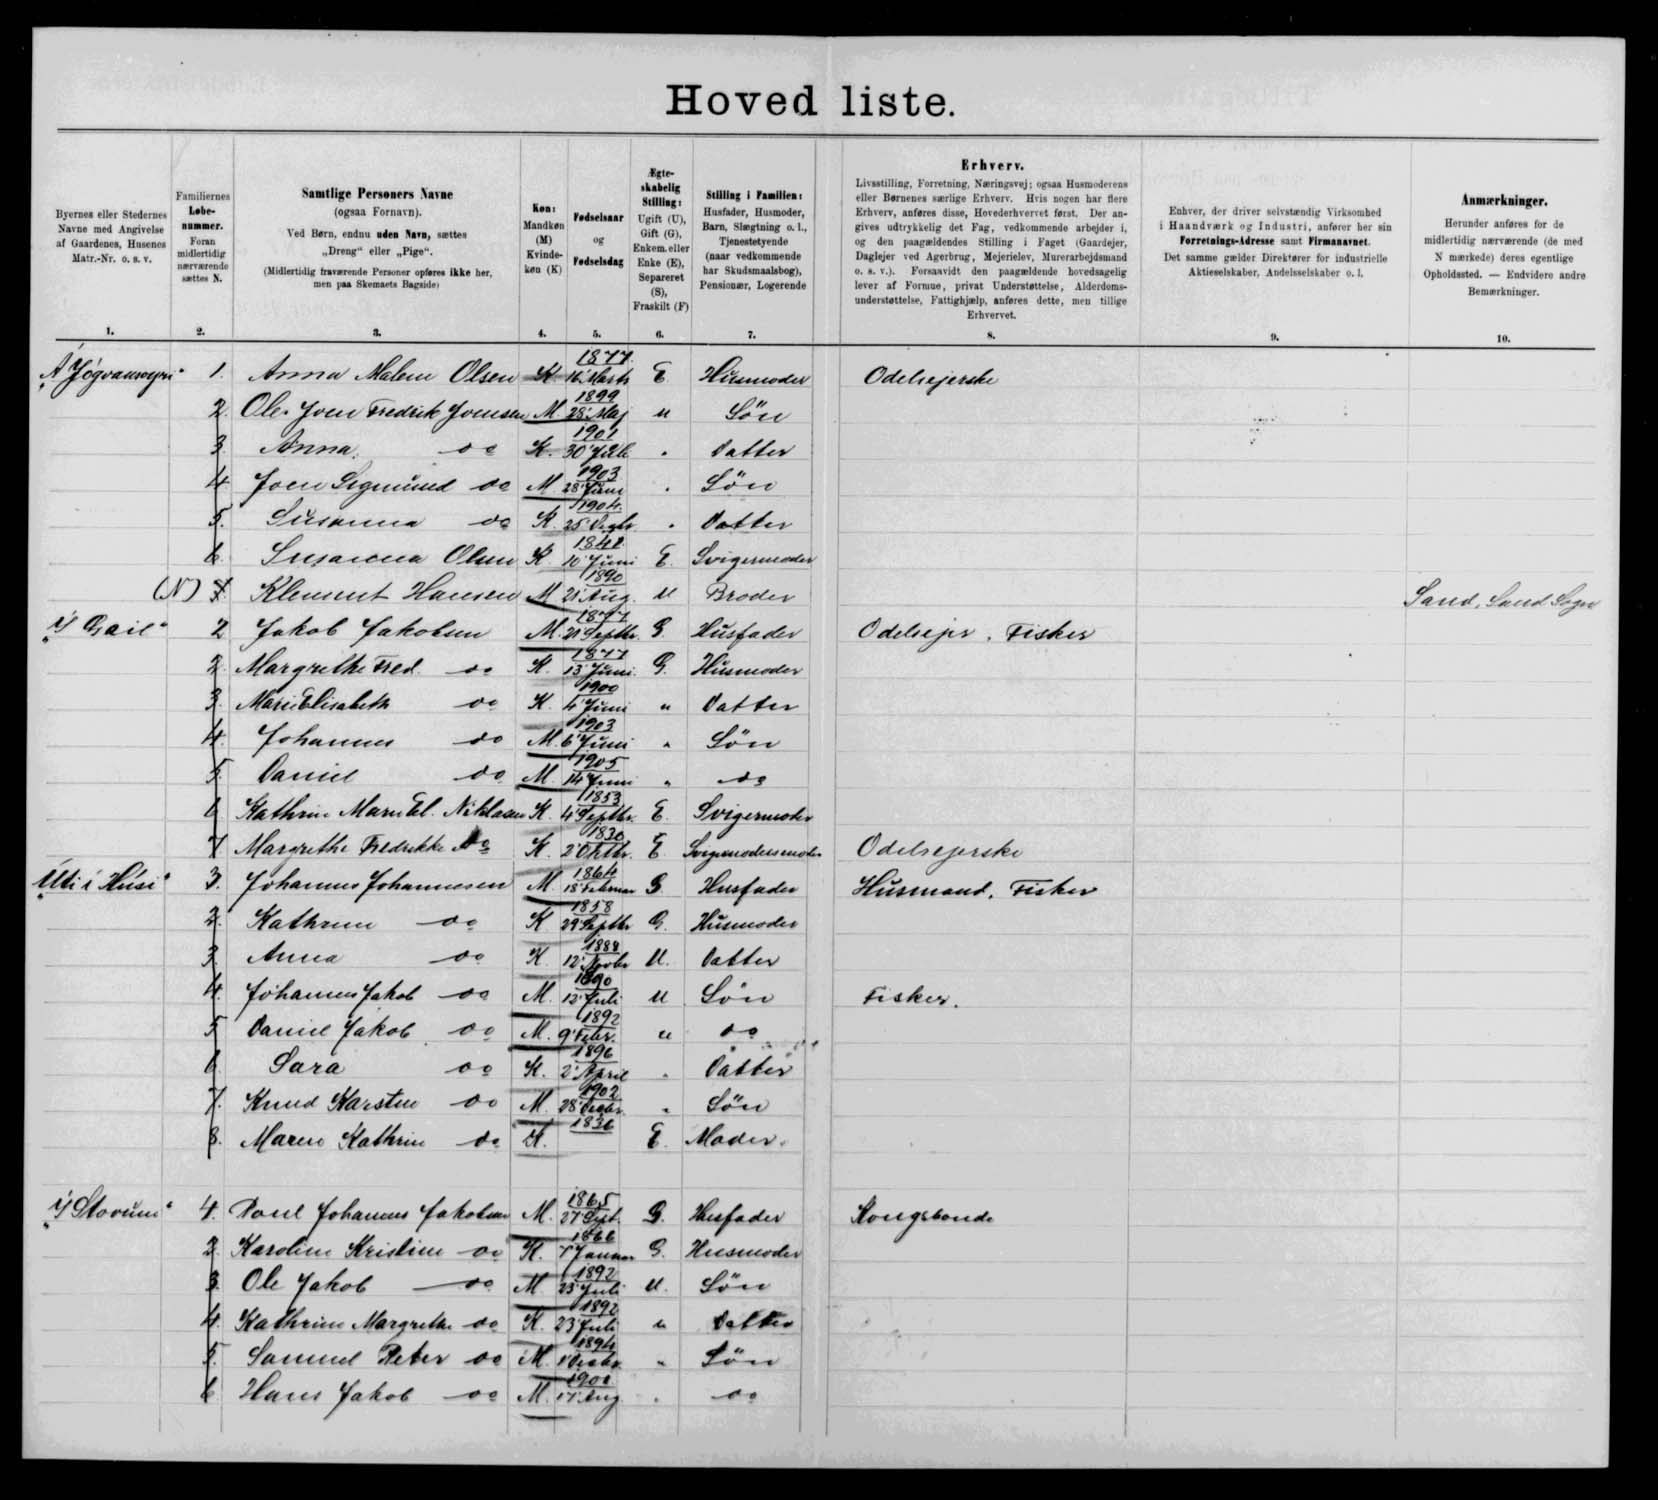 Hovedliste.
Byernes eller Stedernes Navne med Angivelse af Gaardenes, Husenes Matr.-Nr. o. s. v.
Familiernes Løbenummer. Foran midlertidig nærværende sættes N.
Samtlige Personers Navne (ogsaa Fornavn). Ved Børn, endnu uden Navn, sættes „Dreng“ eller „Pige“. (Midlertidig fraværende Personer opføres ikke her, men paa Skemaets Bagside)
Køn: Mandkøn (M) Kvindekøn (K)
Fødselsaar og Fødselsdag
Ægteskabelig Stilling: Ugift (U), Gift (G), Enkem. eller Enke (E), Separeret (S), Fraskilt (F)
Stilling i Familien: Husfader, Husmoder, Barn, Slægtning o. l., Tjenestetyende (naar vedkommende har Skudsmaalsbog), Pensionær, Logerende
Erhverv. Livsstilling, Forretning, Næringsvej; ogsaa Husmoderens eller Børnenes særlige Erhverv. Hvis nogen har flere Erhverv, anføres disse, Hovederhvervet først. Der angives udtrykkelig det Fag, vedkommende arbejder i, og den paagældendes Stilling i Faget (Gaardejer, Daglejer ved Agerbrug, Mejerielev, Murerarbejdsmand o. s. v.). Forsaavidt den paagældende hovedsagelig lever af Formue, privat Understøttelse, Alderdomsunderstøttelse, Fattighjælp, anføres dette, men tillige Erhvervet.
Enhver, der driver selvstændig Virksomhed i Haandværk og Industri, anfører her sin Forretnings-Adresse samt Firmanavnet. Det samme gælder Direktører for industrielle Aktieselskaber, Andelsselskaber o. l.
Anmærkninger. Herunder anføres for de midlertidig nærværende (de med N mærkede) deres egentlige Opholdssted. — Endvidere andre Bemærkninger.
1. 2. 3. 4. 5. 6. 7. 8. 9. 10.
1. Anna Malene Olsen K 1877 16' Marts E Husmoder Odelsejerske
2. Ole Joen Fredrik Joensen M. 1899 28' Maj u Søn
3. Anna do K. 1901 30' Juli " Datter
4. Joen Sigmund do M 1903 28' Juni " Søn
5. Susanna do K. 1904 25' Degbr. " Datter
6. Susanna Olsen K. 10' Juni E. Svigermoder
(N) Klement Hansen M 1890 21' Aug. U Broder Sand, Sand Sogn
"Y Gail" 2 Jakob Jakobsen M. 1877 21' Septbr. G. Husfader Odelsejer. Fisker
2. Margrethe Fred. do K. 1877 13' Juni. G. Husmoder
3. Marie Elisabeth do K. 1900 4' Juni " Datter
4. Johannes do M. 1903 6' Juni " Søn
5. Daniel do M. 1905 14' Juni " do
6 Kathrine Maren El. Niklasen K. 1853 4' Septbr. E. Svigermoder
7 Margrethe Fredrikke do K. 1830 2' Oktbr. E Svigermodersmoder Odelsejerske
"Uti i Húsi" 3. Johannes Johannesen M. 1864 18' Februar G. Husfader Husmand. Fisker
2. Kathrine do K 1858 29' Septbr G. Husmoder
3. Anna do K. 1888 12' Novbr U. Datter
4. Johannes Jakob do M. 1890 12' Juli U Søn Fisker.
5 Daniel Jakob do M. 1892 9' Febr. u do
6. Sara do K. 1896 2' April " Datter
7. Knud Karsten do M. 1902 28' Degbr. " Søn
8. Maren Kathrine do K. 1836 E. Moder.
"Y Stovum" 4. Poul Johannes Jakobsen M. 1865 27' Sept. G. Husfader Kongsbonde
2. Karoline Kristine do K. 1866 7' Januar G. Husmoder
3. Ole Jakob do M 1892 23' Juli U. Søn
4. Kathrine Margrethe do K. 1892 23' Juli u Datter
5. Samuel Peter do M. 1894 1' Decbr. " Søn
6 Hans Jakob do M. 17' Aug " do